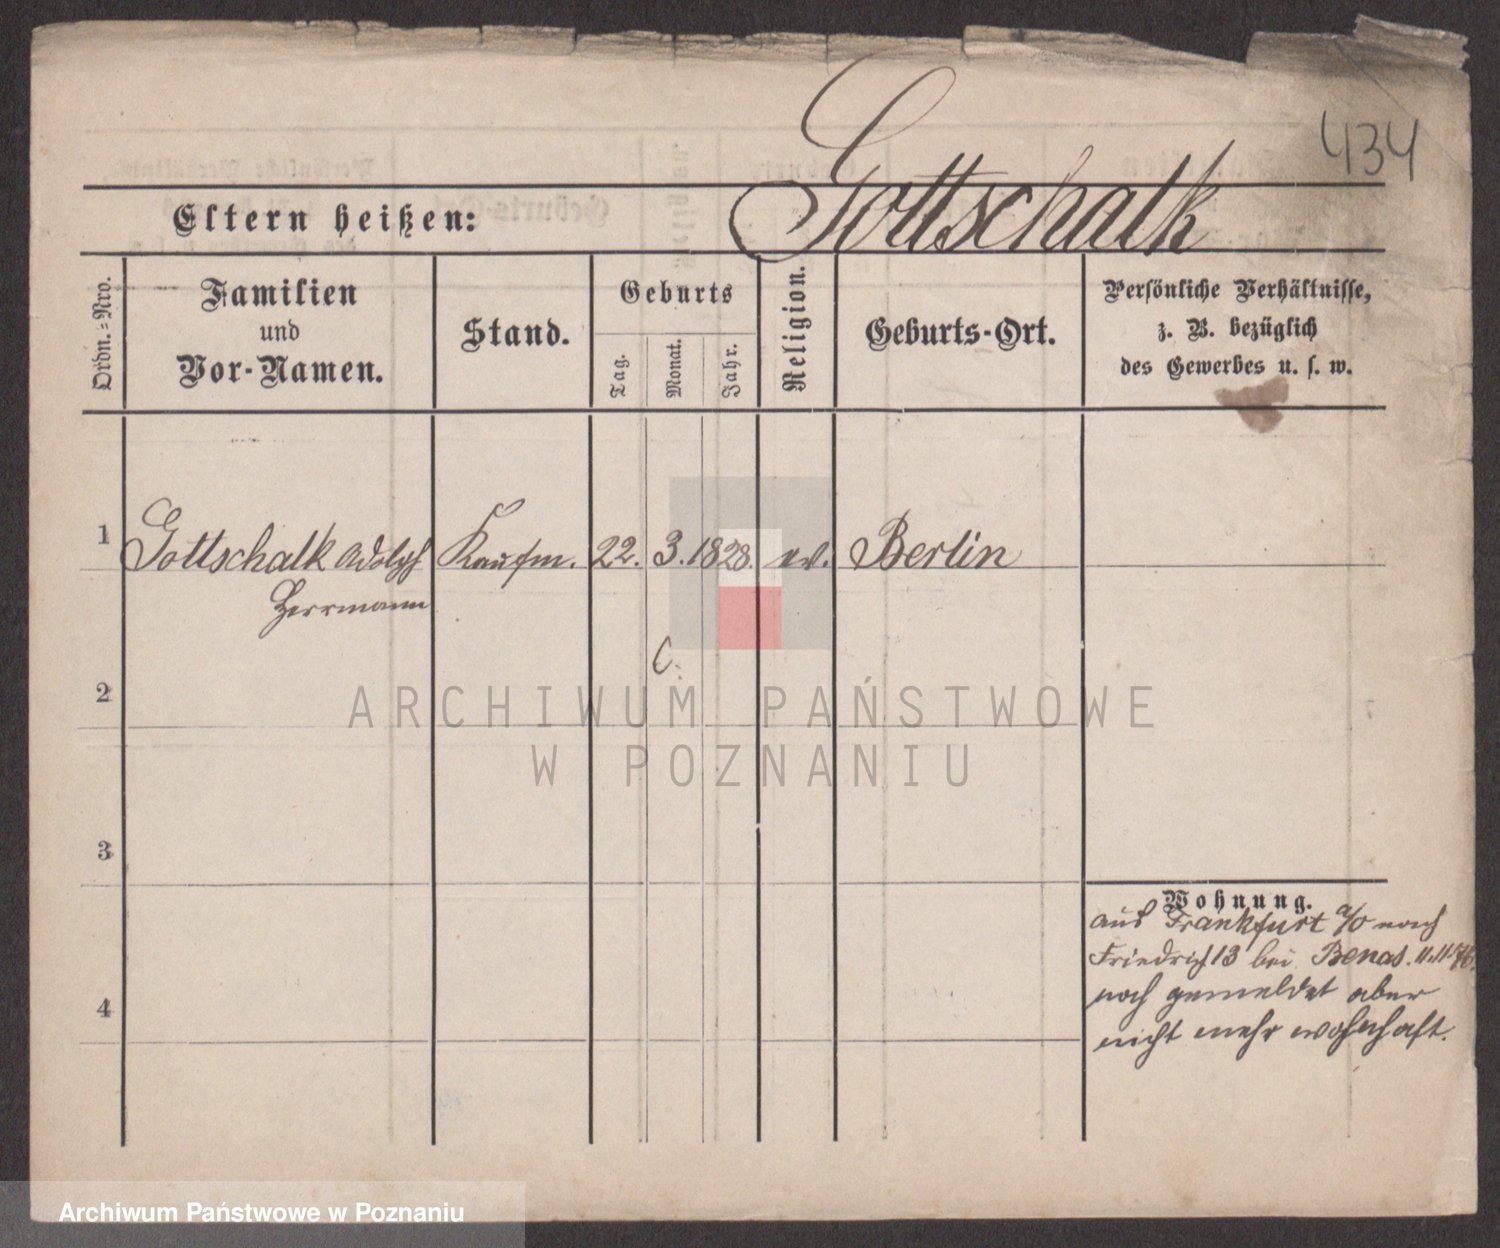 434
Gottschalk
Eltern heißen:
Ordn.=Nro.
Familien
und
Vor-Namen.
Stand.
Geburts
Tag.
Monat.
Jahr.
Religion.
Geburts-Ort.
Persönliche Verhältnisse,
z. B. bezüglich
des Gewerbes u. s. w.
1 Gottschalk Adolph Kaufm. 22. 3. 1828. ev. Berlin
Herrmann
C.
2
ARCHIWUM PAŃSTWOWE
W POZNANIU
3
Wohnung.
aus Frankfurt a/O nach
Friedrich 13 bei Benas. 11.11.76.
noch gemeldet aber
nicht mehr wohnhaft.
4
Archiwum Państwowe w Poznaniu